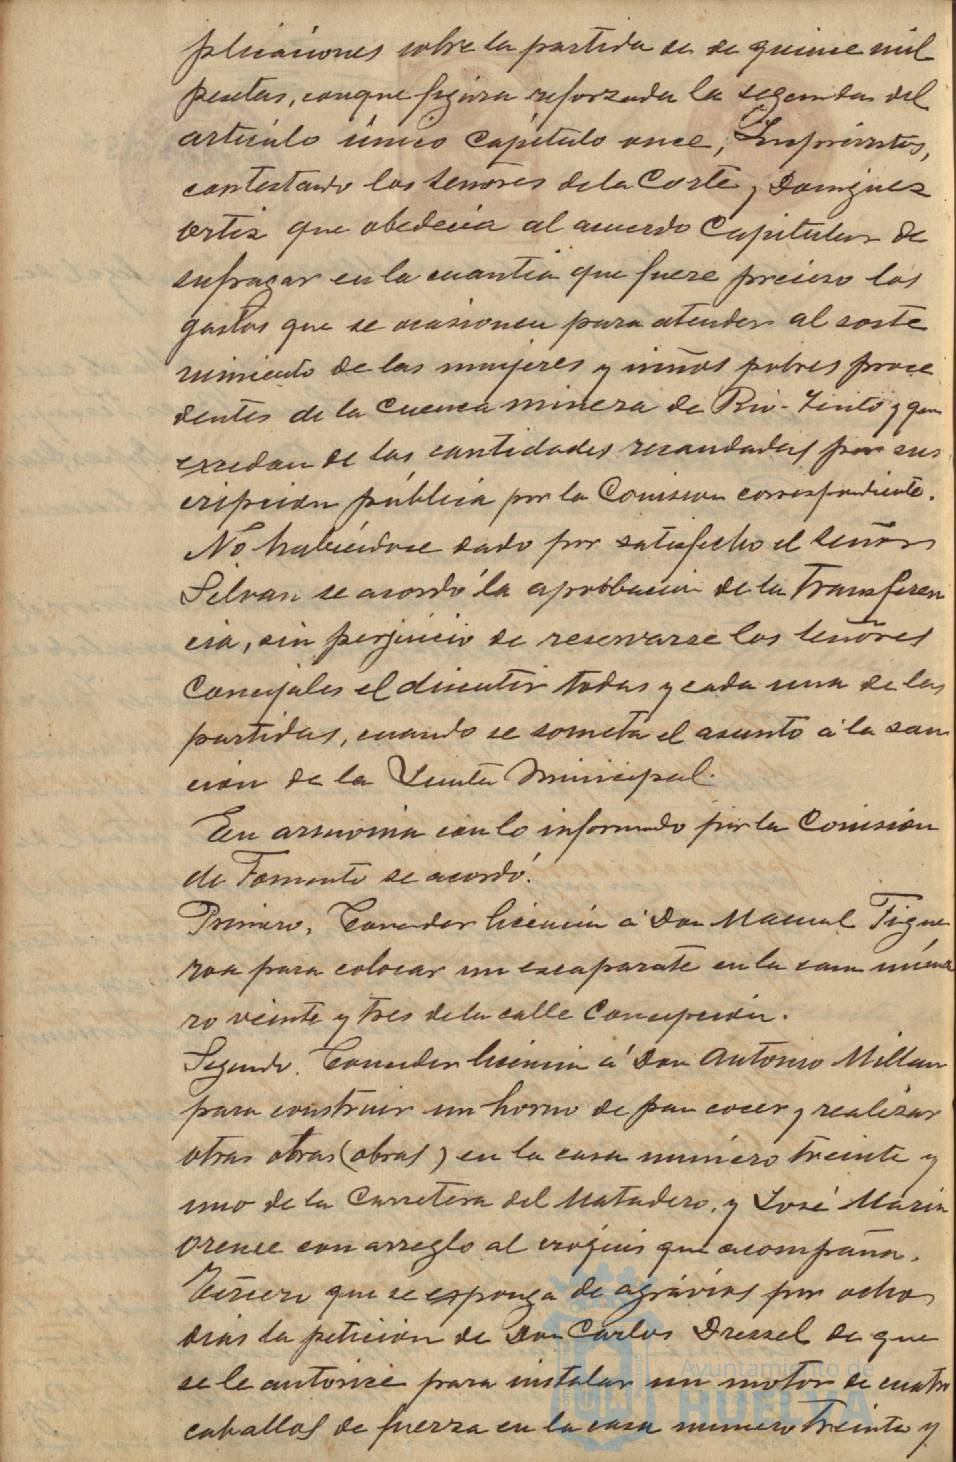 plicaciones sobre la partida de de quince mil
pesetas, conque figura reforzada la segunda del
artículo único Capítulo once, Imprevistos,
contestando los señores de la Corte y Dominguez
Ortiz que obedecia al acuerdo Capitular de
sufragar en la cuantia que fuere preciso los
gastos que se ocasionen para atender al soste
nimiento de las mujeres y niños pobres proce
dentes de la Cuenca minera de Rio-Tinto y que
excedan de las cantidades recaudadas por sus
cripcion pública por la Comision correspondiente.
No habiéndose dado por satisfecho el señor
Silvan se acordó la aprobacion de la transferen
cia, sin perjuicio de reservarse los señores
Concejales el discutir todas y cada una de las
partidas, cuando se someta el asunto á la san
ción de la Junta Municipal.
En armonia con lo informado por la Comision
de Fomento se acordó.
Primero, Conceder licencia á Don Manuel Figue
roa para colocar un escaparate en la casa núme
ro veinte y tres de la calle Concepción.
Segundo. Conceder licencia á Don Antonio Millan
para construir un horno de pan cocer y realizar
otras otras (obras) en la casa número treinta y
uno de la Carretera del Matadero, y José Maria
Orense con arreglo al cróquis que acompaña.
Tercero que se esponga de agrávios por ocho
dias la petición de Don Carlos Dressel de que
se le autorice para instalar un motor de cuatro
caballos de fuerza en la casa numero treinta y
Ayuntamiento de
HUELVA